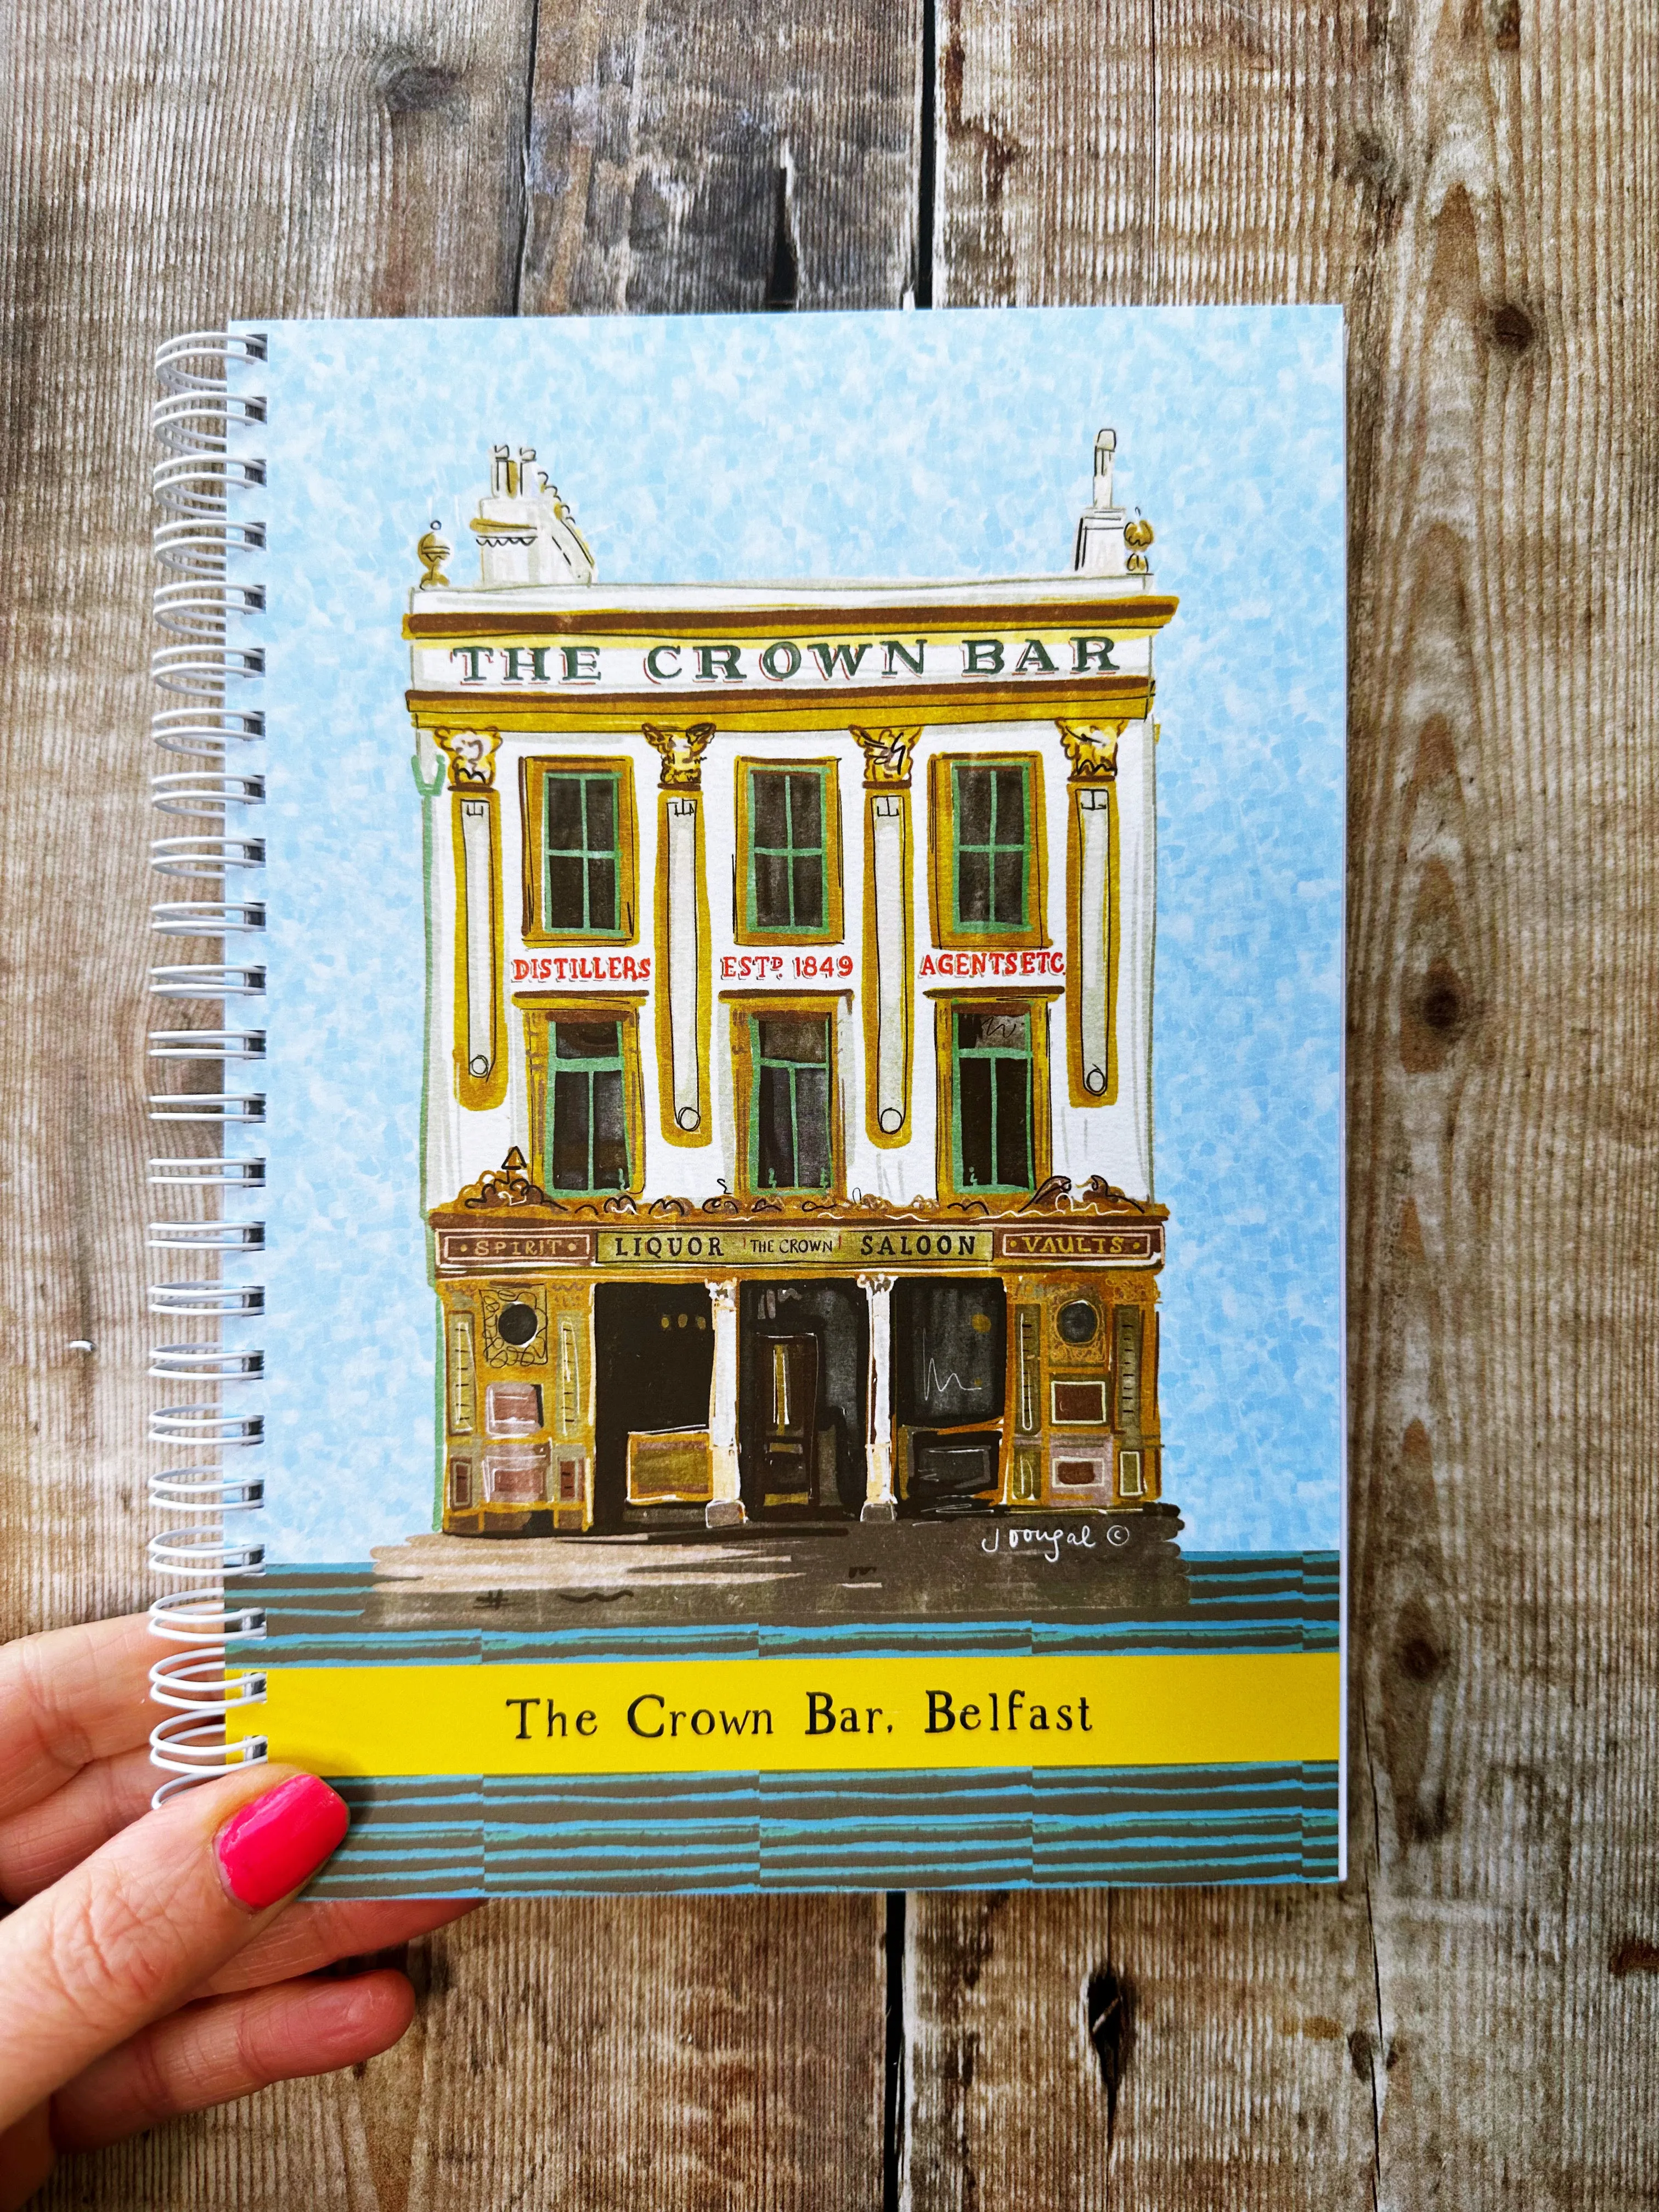 THE CROWN BAR
DISTILLERS ESTD 1849 AGENTS ETC.
· SPIRIT · LIQUOR THE CROWN SALOON · VAULTS ·
J Dougal ©
The Crown Bar, Belfast